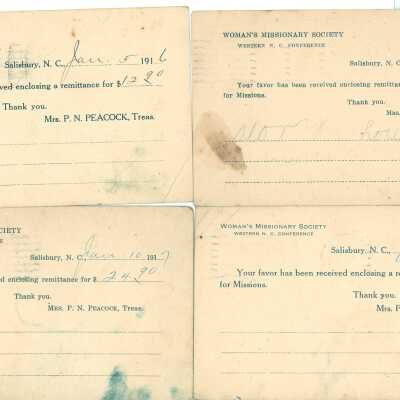 Salisbury, N. C., Jan. 5 1916
ved enclosing a remittance for $12.90
Thank you.
Mrs. P. N. PEACOCK, Treas.
WOMAN'S MISSIONARY SOCIETY
WESTERN N. C. CONFERENCE
Salisbury, N. C.
Your favor has been received enclosing remittan
for Missions.
Thank you.
Mrs.
CIETY
CE
Salisbury, N. C. Jan 10 1917
ed enclosing remittance for $ 24.90
Thank you.
MRS. P. N. PEACOCK, Treas.
WOMAN'S MISSIONARY SOCIETY
WESTERN N. C. CONFERENCE
Salisbury, N. C.,
Your favor has been received enclosing a r
for Missions.
Thank you.
MRS. P